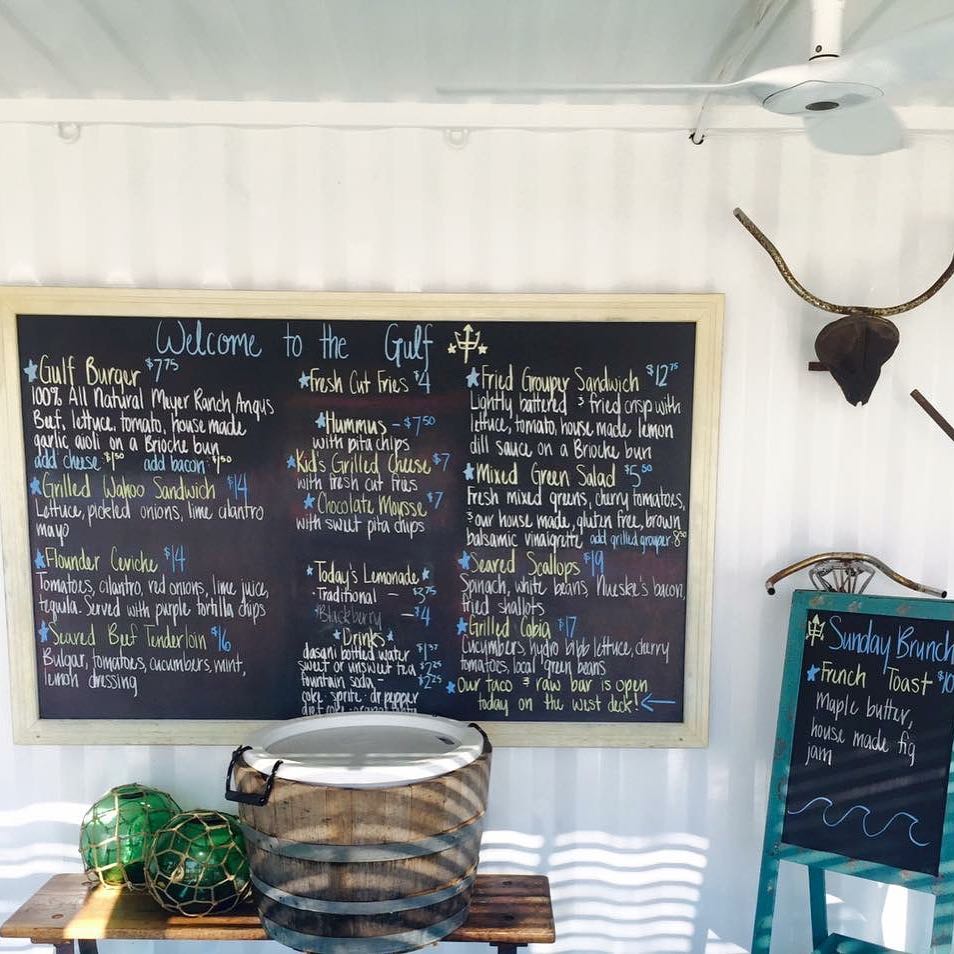 Welcome to the Gulf
Gulf Burger $7.75
100% All Natural Meyer Ranch Angus
Beef, lettuce, tomato, house made
garlic aioli on a Brioche bun
add cheese $1.50 add bacon $1.50
Grilled Wahoo Sandwich $14
Lettuce, pickled onions, lime cilantro
mayo
Flounder Ceviche $14
Tomatoes, cilantro, red onions, lime juice,
tequila. Served with purple tortilla chips
Seared Beef Tenderloin $16
Bulgar, tomatoes, cucumbers, mint,
lemon dressing
Fresh Cut Fries $4
Hummus - $7.50
with pita chips
Kid's Grilled Cheese $7
with fresh cut fries
Chocolate Mousse $7
with sweet pita chips
Today's Lemonade
Traditional - $3.75
Blackberry - $4
Drinks
dasani bottled water $1.57
sweet or unsweet tea $2.25
fountain soda - $2.25
coke sprite dr pepper
diet coke
Fried Grouper Sandwich $12.75
Lightly battered & fried crisp with
lettuce, tomato, house made lemon
dill sauce on a Brioche bun
Mixed Green Salad $5.50
Fresh mixed greens, cherry tomatoes,
& our house made, gluten free, brown
balsamic vinaigrette add grilled grouper 8.50
Seared Scallops $19
Spinach, white beans, Nueske's bacon,
fried shallots
Grilled Cobia $17
Cucumbers, hydro bibb lettuce, cherry
tomatoes, local green beans
Our taco & raw bar is open
today on the west deck!
Sunday Brunch
French Toast $10
maple butter,
house made fig
jam